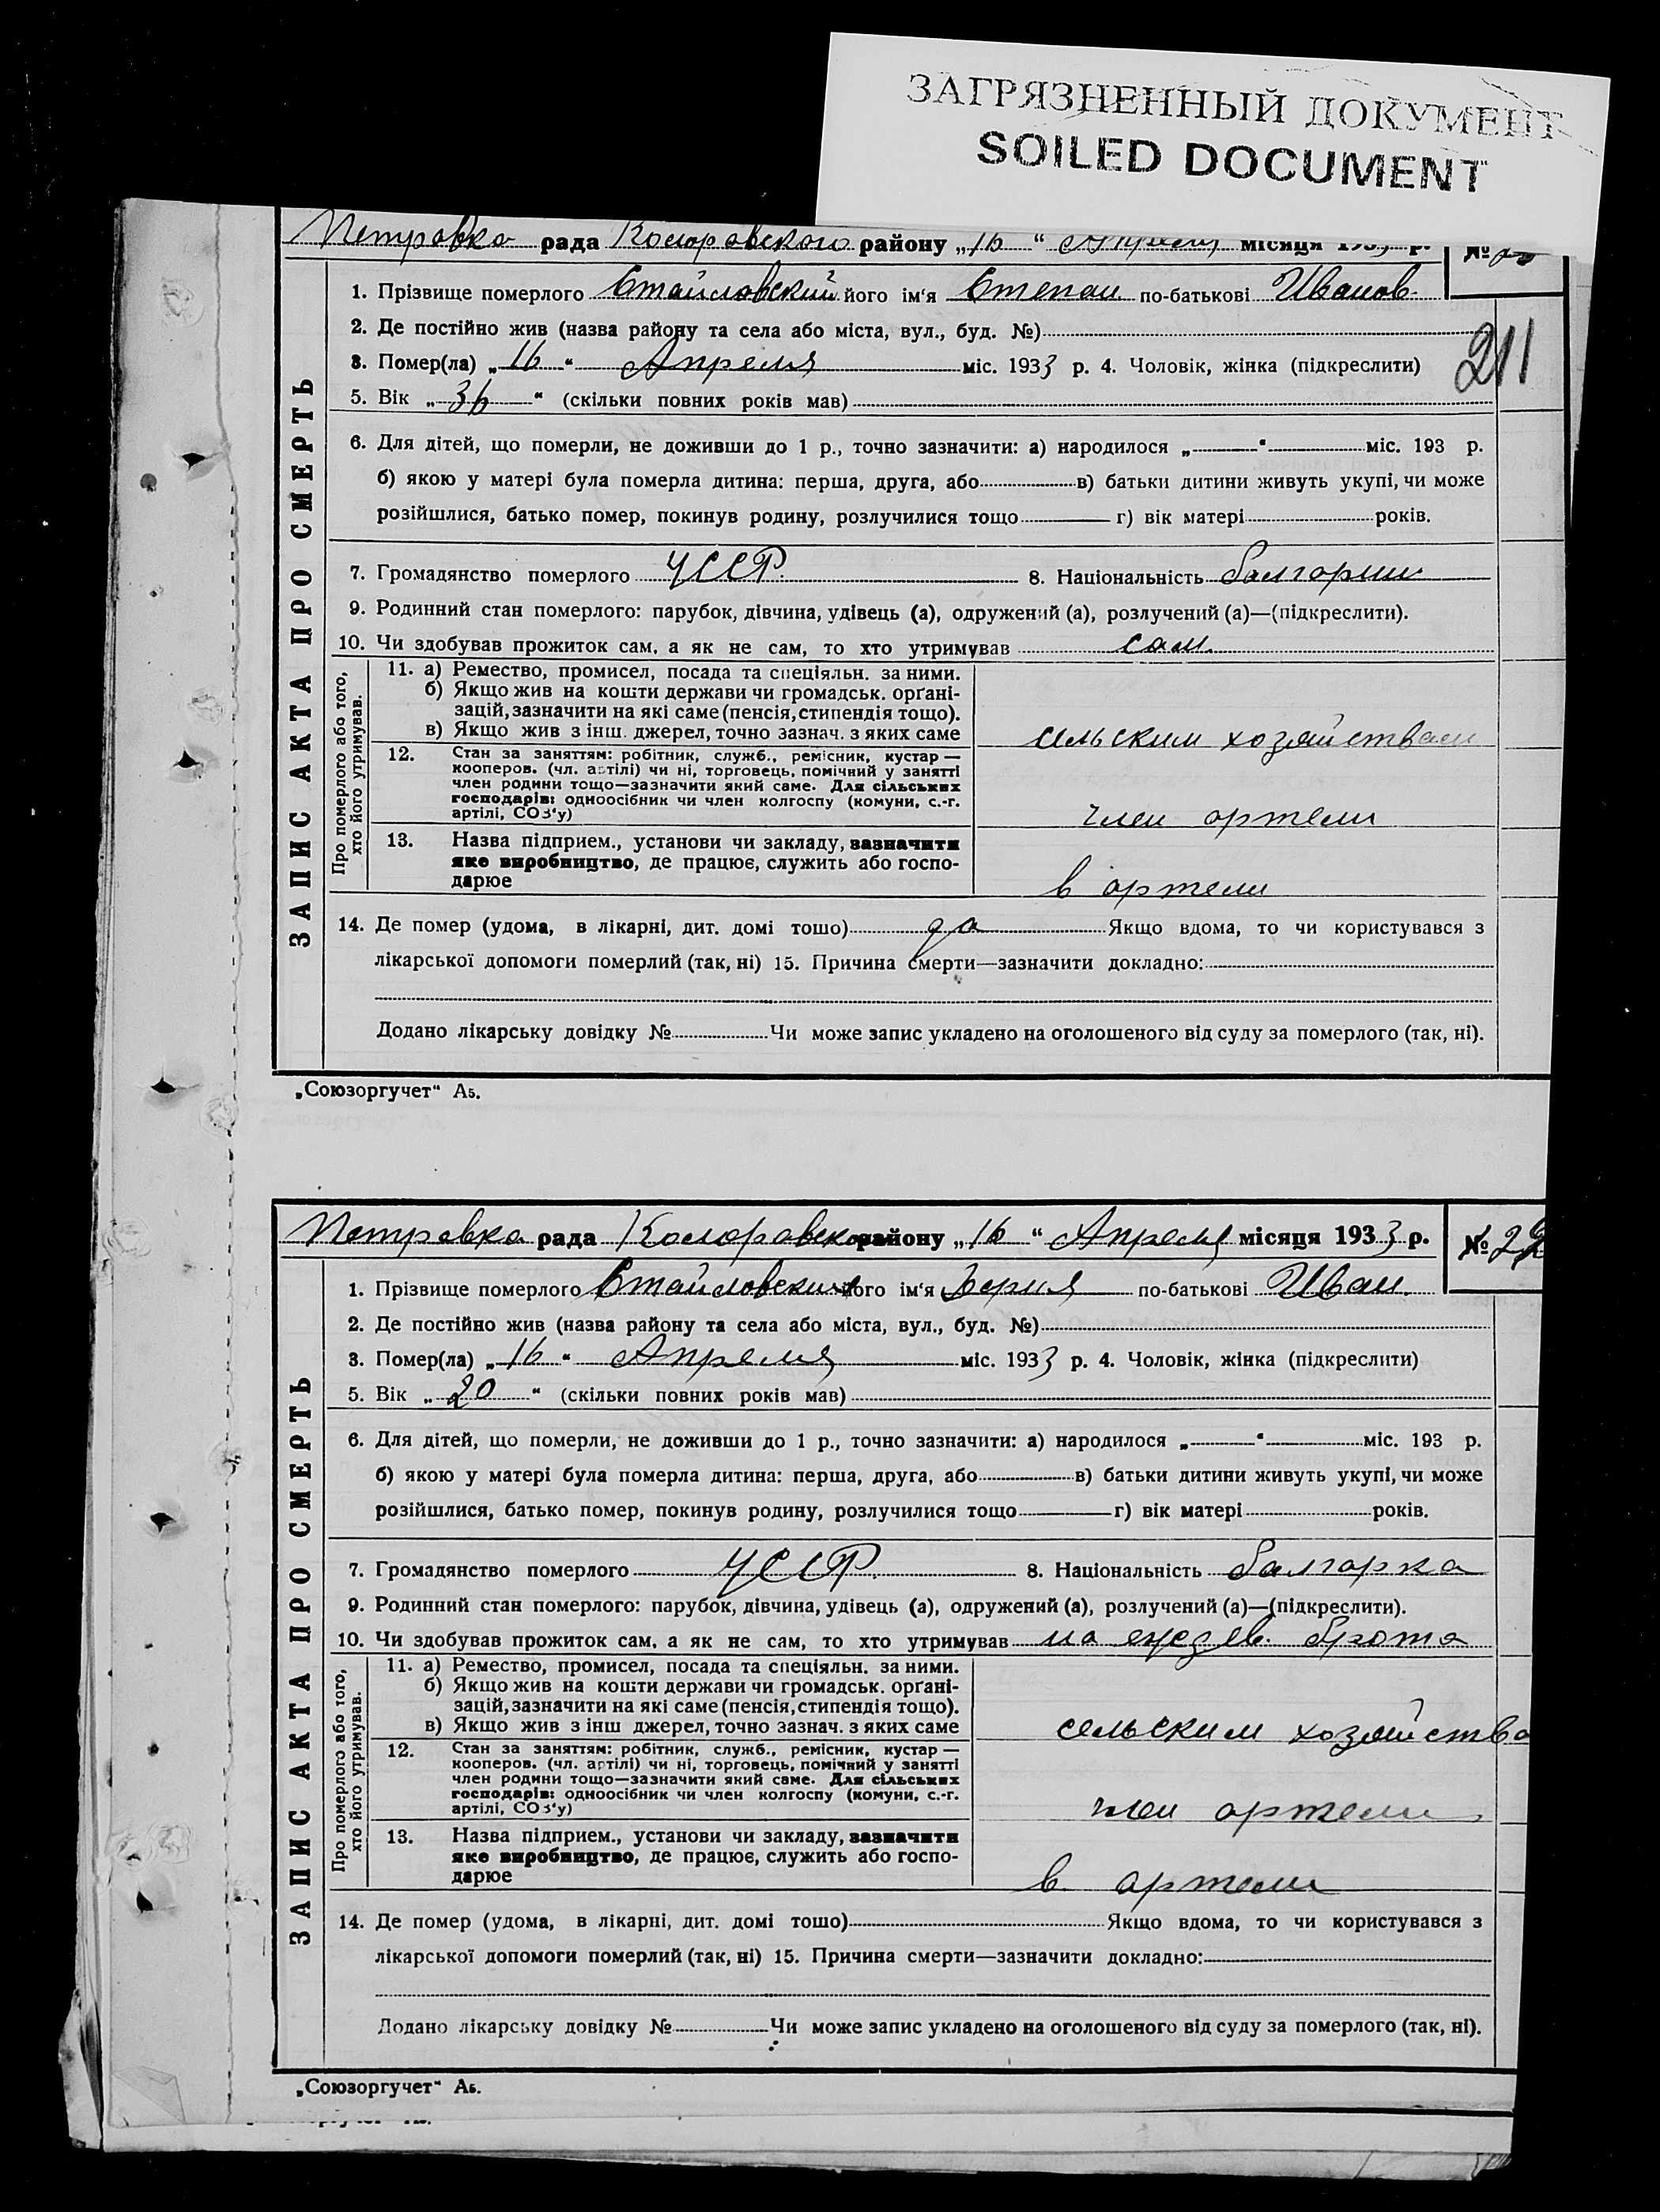 ЗАГРЯЗНЕННЫЙ ДОКУМЕНТ
SOILED DOCUMENT
Петровка рада Коларовского району „16 “ Апреля місяця 1933 р. №
1. Прізвище померлого Стайловский його ім‘я Степан по-батькові Иванов.
2. Де постійно жив (назва району та села або міста, вул., буд. №)
211
3. Помер(ла) „ 16 “ Апреля міс. 1933 р. 4. Чоловік, жінка (підкреслити)
5. Вік „ 36 “ (скільки повних років мав)
6. Для дітей, що померли, не доживши до 1 р., точно зазначити: а) народилося „ “ міс. 193 р.
б) якою у матері була померла дитина: перша, друга, або в) батьки дитини живуть укупі, чи може
розійшлися, батько помер, покинув родину, розлучилися тощо г) вік матері років.
7. Громадянство померлого УССР. 8. Національність болгорин
9. Родинний стан померлого: парубок, дівчина, удівець (а), одружений (а), розлучений (а)—(підкреслити).
10. Чи здобував прожиток сам, а як не сам, то хто утримував сам.
ЗАПИС АКТА ПРО СМЕРТЬ
Про померлого або того,
хто його утримував.
11. а) Ремество, промисел, посада та спеціяльн. за ними.
б) Якщо жив на кошти держави чи громадськ. орґані-
зацій, зазначити на які саме (пенсія, стипендія тощо).
в) Якщо жив з інш. джерел, точно зазнач. з яких саме
сельским хозяйством
12. Стан за заняттям: робітник, служб., ремісник, кустар —
кооперов. (чл. артілі) чи ні, торговець, помічний у занятті
член родини тощо—зазначити який саме. Для сільських
господарів: одноосібник чи член колгоспу (комуни, с.-г.
артілі, СОЗ‘у)
член ортели
13. Назва підприєм., установи чи закладу, зазначити
яке виробництво, де працює, служить або госпо-
дарює
в ортели
14. Де помер (удома, в лікарні, дит. домі тошо) да Якщо вдома, то чи користувався з
лікарської допомоги померлий (так, ні) 15. Причина смерти—зазначити докладно:
Додано лікарську довідку № Чи може запис укладено на оголошеного від суду за померлого (так, ні).
„Союзоргучет“ А5.
Петровка рада Коларовского району „16 “ Апреля місяця 1933 р. № 22
1. Прізвище померлого його ім‘я по-батькові Иван.
2. Де постійно жив (назва району та села або міста, вул., буд. №)
3. Помер(ла) „ 16 “ Апреля міс. 1933 р. 4. Чоловік, жінка (підкреслити)
5. Вік „ 20 “ (скільки повних років мав)
6. Для дітей, що померли, не доживши до 1 р., точно зазначити: а) народилося „ “ міс. 193 р.
б) якою у матері була померла дитина: перша, друга, або в) батьки дитини живуть укупі, чи може
розійшлися, батько помер, покинув родину, розлучилися тощо г) вік матері років.
7. Громадянство померлого УССР. 8. Національність болгорка
9. Родинний стан померлого: парубок, дівчина, удівець (а), одружений (а), розлучений (а)—(підкреслити).
10. Чи здобував прожиток сам, а як не сам, то хто утримував на брота
ЗАПИС АКТА ПРО СМЕРТЬ
Про померлого або того,
хто його утримував.
11. а) Ремество, промисел, посада та спеціяльн. за ними.
б) Якщо жив на кошти держави чи громадськ. орґані-
зацій, зазначити на які саме (пенсія, стипендія тощо).
в) Якщо жив з інш джерел, точно зазнач. з яких саме
сельским хозяйство
12. Стан за заняттям: робітник, служб., ремісник, кустар —
кооперов. (чл. артілі) чи ні, торговець, помічний у занятті
член родини тощо—зазначити який саме. Для сільських
господарів: одноосібник чи член колгоспу (комуни, с.-г.
артілі, СОЗ‘у)
член ортели
13. Назва підприєм., установи чи закладу, зазначити
яке виробництво, де працює, служить або госпо-
дарює
в. ортели
14. Де помер (удома, в лікарні, дит. домі тошо) Якщо вдома, то чи користувався з
лікарської допомоги померлий (так, ні) 15. Причина смерти—зазначити докладно:
Додано лікарську довідку № Чи може запис укладено на оголошеного від суду за померлого (так, ні).
„Союзоргучет“ А5.